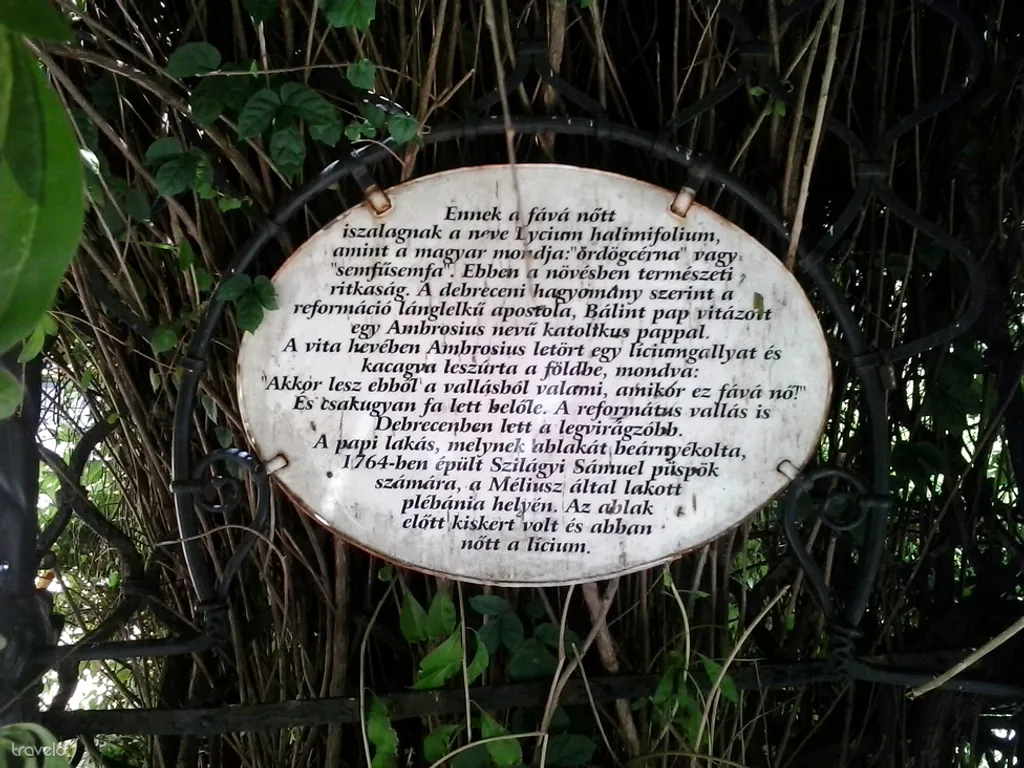 Ennek a fává nőtt
iszalagnak a neve Lycium halimifolium,
amint a magyar mondja:"ördögcérna" vagy
"semfűsemfa". Ebben a növésben természeti
ritkaság. A debreceni hagyomány szerint a
reformáció lánglelkű apostola, Bálint pap vitázott
egy Ambrosius nevű katolikus pappal.
A vita hevében Ambrosius letört egy líciumgallyat és
kacagva leszúrta a földbe, mondva:
"Akkor lesz ebből a vallásból valami, amikor ez fává nő!"
És csakugyan fa lett belőle. A református vallás is
Debrecenben lett a legvirágzóbb.
A papi lakás, melynek ablakát beárnyékolta,
1764-ben épült Szilágyi Sámuel püspök
számára, a Méliusz által lakott
plébánia helyén. Az ablak
előtt kiskert volt és abban
nőtt a lícium.
travelo